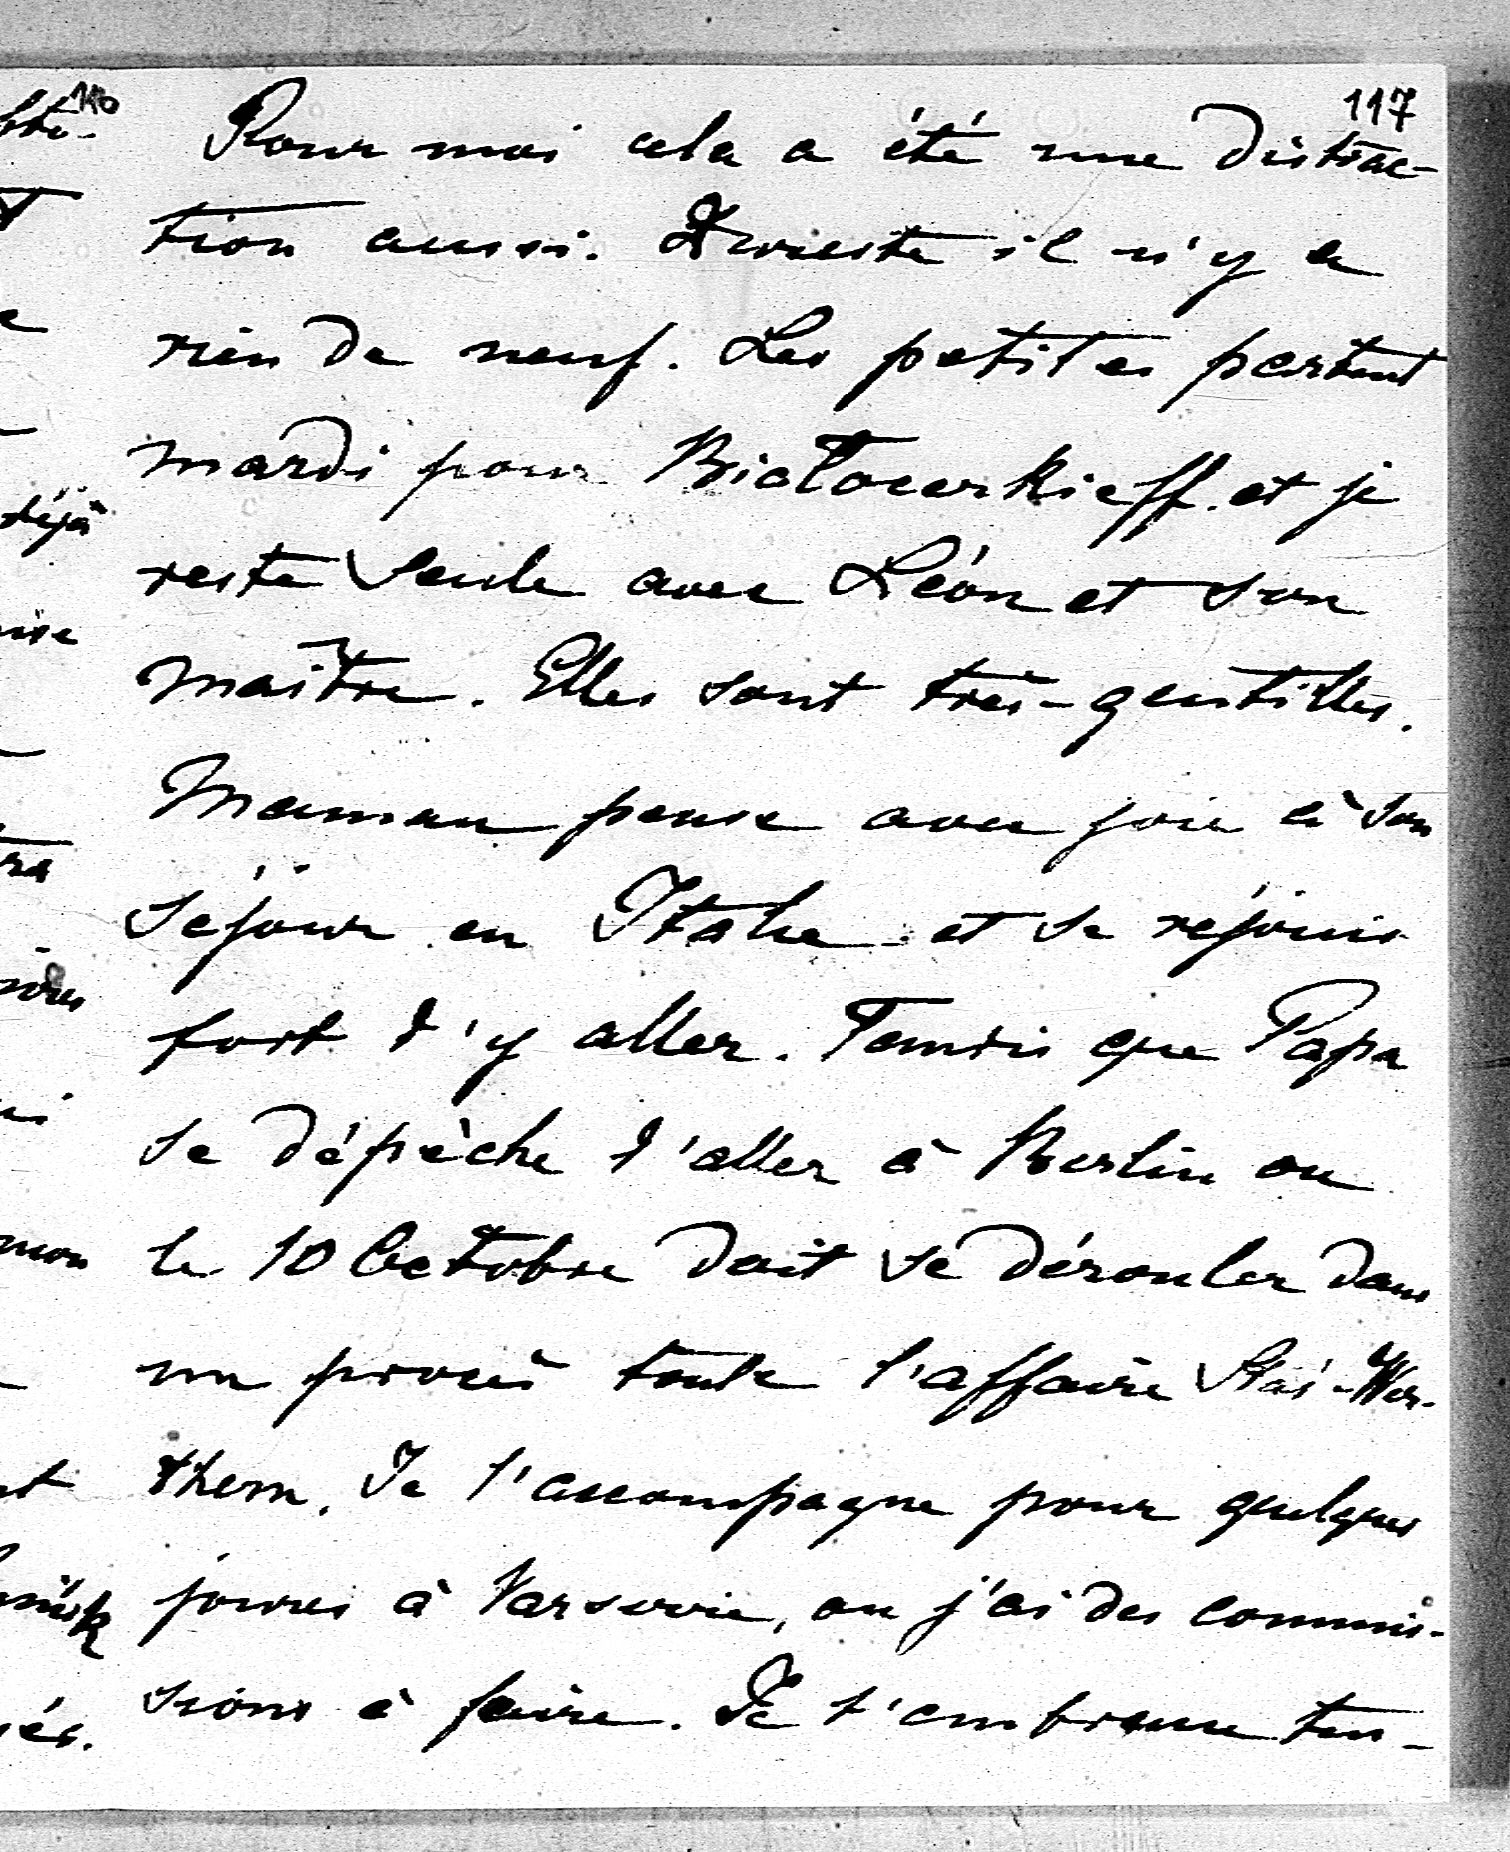 117
Pour moi cela a été une distrac-
tion aussi. Du reste il n'y a
rien de neuf. Les petites partent
mardi pour Białocerkieff et je
reste seule avec Léon et son
maître. Elles sont très-gentilles.
Maman pense avec joie à son
séjour en Italie et se réjouis
fort d'y aller. Tandis que Papa
se dépèche d'aller à Berlin ou
le 10 Octobre doit se dérouler dans
un procès toute l'affaire Staś-Wer-
them. Je l'accompagne pour quelques
jours à Varsovie, ou j'ai des commis-
sions à faire. Je t'embrasse ten-
116
déjà